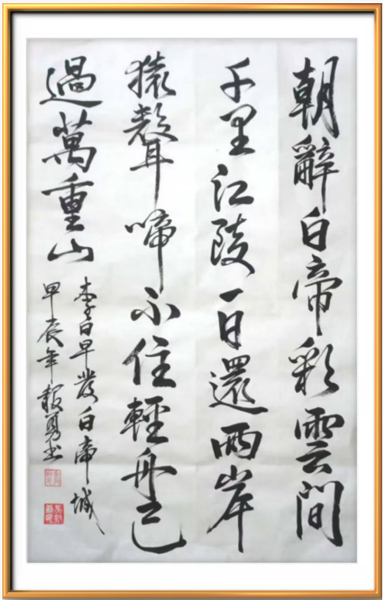 朝辭白帝彩雲間
千里江陵一日還兩岸
猿聲啼不住輕舟已
過萬重山
李白早發白帝城
甲辰年報勇书